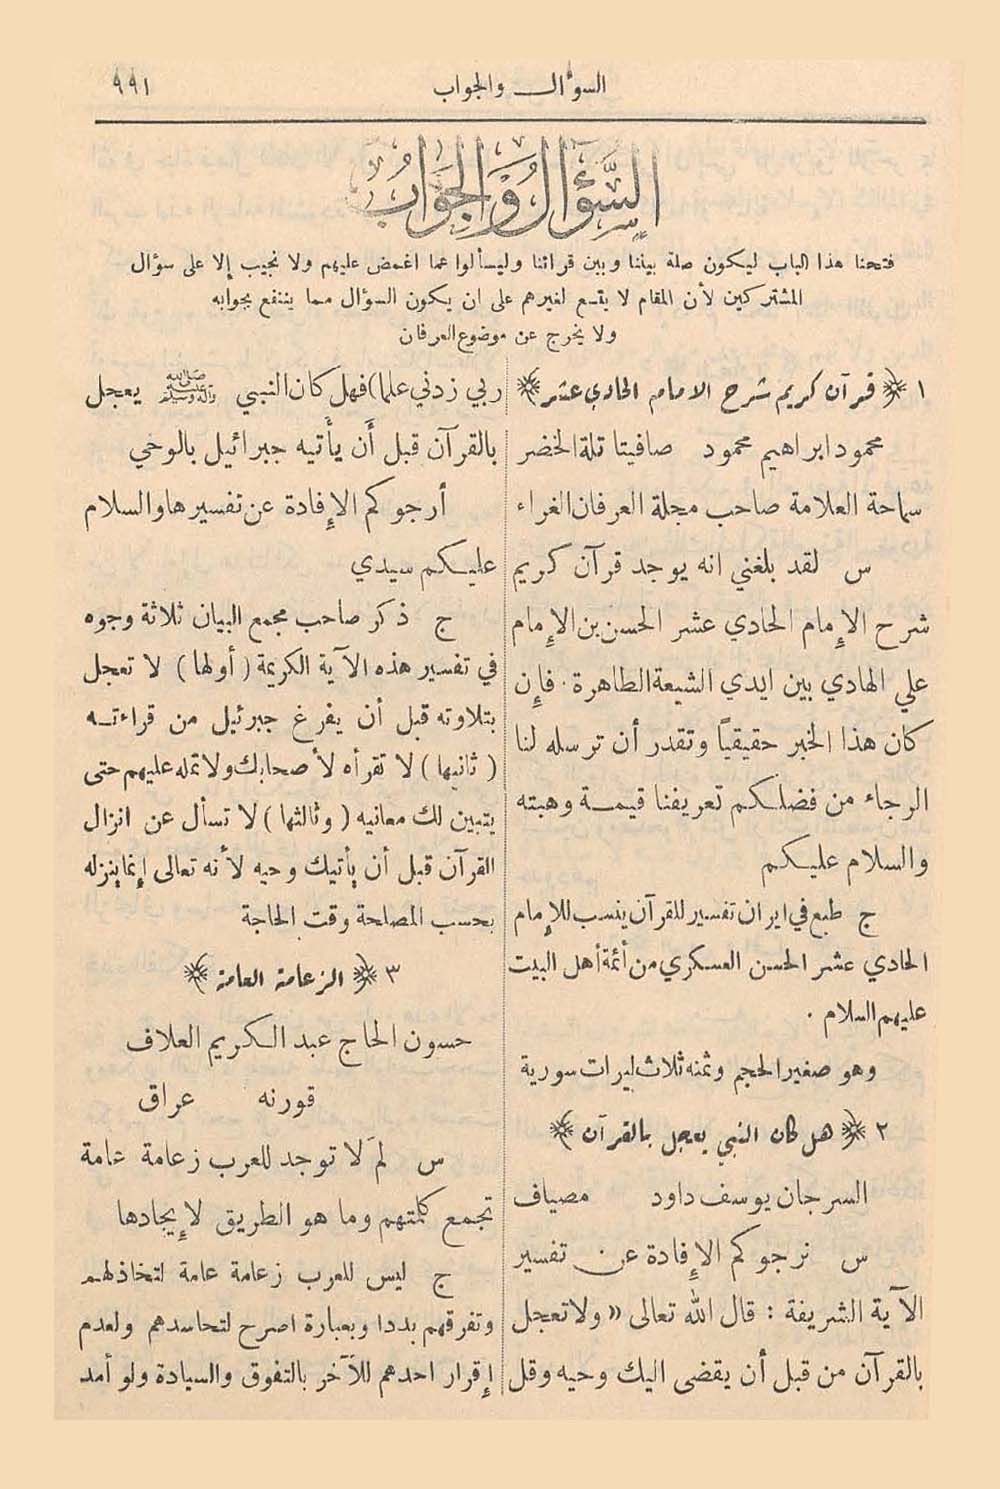 السؤال والجواب
٩٩١
السُّؤَالُ وَالجَوَابُ
فتحنا هذا الباب ليكون صلة بيننا وبين قرائنا وليسألوا عما اغمض عليهم ولا نجيب إلا على سؤال
المشتركين لأن المقام لا يتسع لغيرهم على ان يكون السؤال مما ينتفع بجوابه
ولا يخرج عن موضوع العرفان
١ ﴿ قرآن كريم شرح الامام الحادي عشر ﴾
محمود ابراهيم محمود صافيتا تلة الخضر
سماحة العلامة صاحب مجلة العرفان الغراء
س لقد بلغني انه يوجد قرآن كريم
شرح الإمام الحادي عشر الحسن بن الإمام
علي الهادي بين ايدي الشيعة الطاهرة . فإن
كان هذا الخبر حقيقياً وتقدر أن ترسله لنا
الرجاء من فضلكم تعريفنا قيمة وهبته
والسلام عليكم
ج طبع في ايران تفسير للقرآن ينسب للإمام
الحادي عشر الحسن العسكري من أئمة أهل البيت
عليهم السلام .
وهو صغير الحجم وثمنه ثلاث ليرات سورية
٢ ﴿ هل كان النبي يعجل بالقرآن ﴾
السرجان يوسف داود مصياف
س نرجوكم الإفادة عن تفسير
الآية الشريفة : قال الله تعالى « ولا تعجل
بالقرآن من قبل أن يقضى اليك وحيه وقل
ربي زدني علما) فهل كان النبي ﷺ يعجل
بالقرآن قبل أن يأتيه جبرائيل بالوحي
أرجوكم الإفادة عن تفسيرها والسلام
عليكم سيدي
ج ذكر صاحب مجمع البيان ثلاثة وجوه
في تفسير هذه الآية الكريمة ( أولها ) لا تعجل
بتلاوته قبل أن يفرغ جبرئيل من قراءته
( ثانيها ) لا تقرأه لأصحابك ولا تمله عليهم حتى
يتبين لك معانيه ( وثالثها ) لا تسأل عن انزال
القرآن قبل أن يأتيك وحيه لأنه تعالى إنما ينزله
بحسب المصلحة وقت الحاجة
٣ ﴿ الزعامة العامة ﴾
حسون الحاج عبد الكريم العلاف
قورنه عراق
س لمَ لا توجد للعرب زعامة عامة
تجمع كلمتهم وما هو الطريق لإيجادها
ج ليس للعرب زعامة عامة لتخاذلهم
وتفرقهم بددا وبعبارة اصرح لتحاسدهم ولعدم
إقرار احدهم للآخر بالتفوق والسيادة ولو أمد